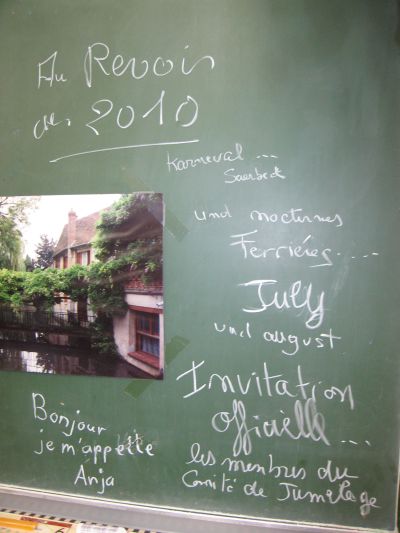 Au Revoir
2010
Karneval ...
Saerbeck
und nocturnes
Ferriéres....
July
und august
Invitation
officielle ...
les membres du
Comité de Jumelage
Bonjour
je m'appelle
Anja